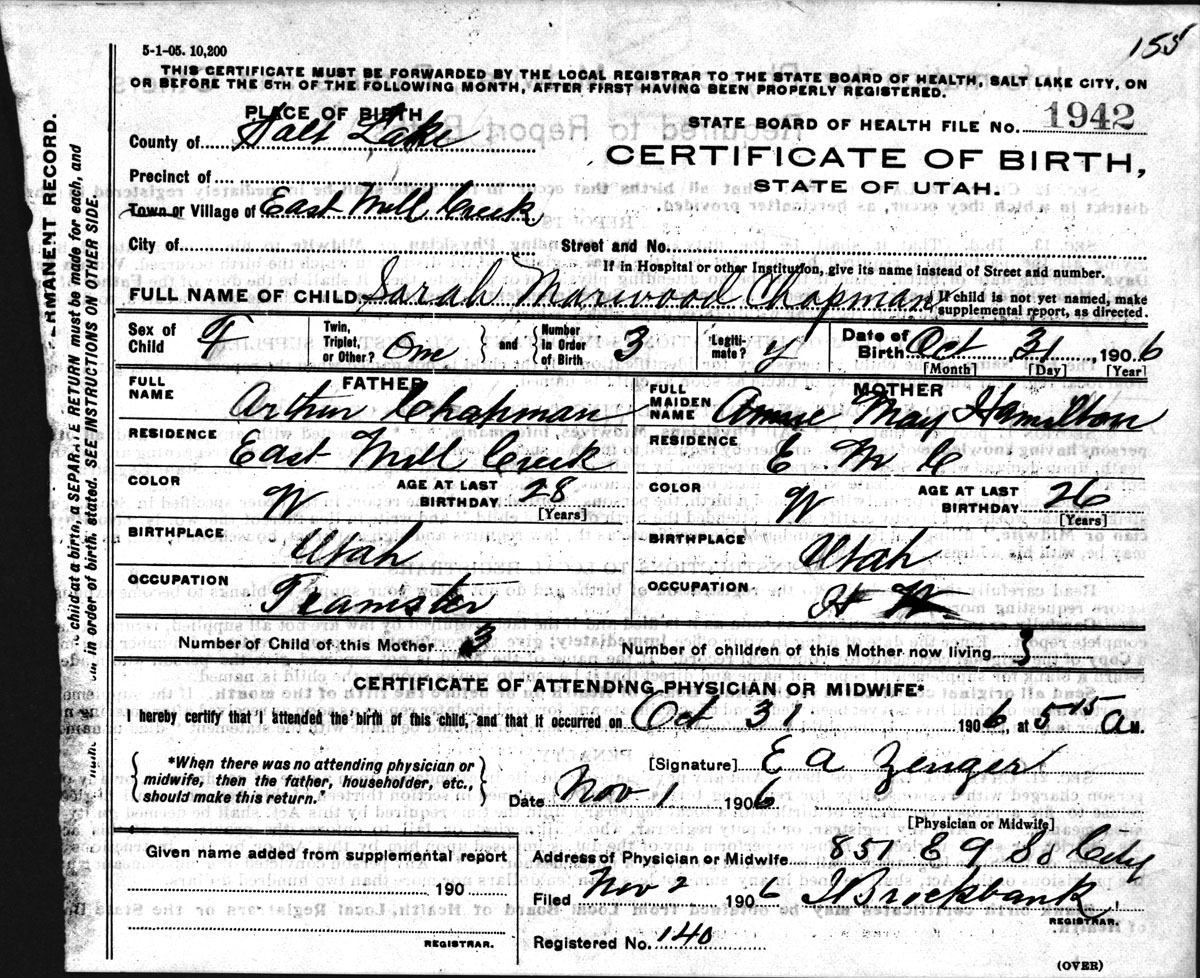 155
5-1-05. 10,200
THIS CERTIFICATE MUST BE FORWARDED BY THE LOCAL REGISTRAR TO THE STATE BOARD OF HEALTH, SALT LAKE CITY, ON
OR BEFORE THE 5TH OF THE FOLLOWING MONTH, AFTER FIRST HAVING BEEN PROPERLY REGISTERED.
PLACE OF BIRTH
County of Salt Lake
STATE BOARD OF HEALTH FILE No. 1942
CERTIFICATE OF BIRTH,
STATE OF UTAH.
Precinct of
Town or Village of East Mill Creek
City of Street and No.
If in Hospital or other Institution, give its name instead of Street and number.
FULL NAME OF CHILD Sarah Marwood Chapman If child is not yet named, make supplemental report, as directed.
Sex of Child F Twin, Triplet, or Other? One and Number in Order of Birth 3 Legitimate? y Date of Birth Oct 31, 1906
[Month] [Day] [Year]
FATHER
FULL NAME Arthur Chapman
RESIDENCE East Mill Creek
COLOR W AGE AT LAST BIRTHDAY 28
[Years]
BIRTHPLACE Utah
OCCUPATION Teamster
MOTHER
FULL MAIDEN NAME Annie May Hamilton
RESIDENCE E M C
COLOR W AGE AT LAST BIRTHDAY 26
[Years]
BIRTHPLACE Utah
OCCUPATION H W
Number of Child of this Mother 3 Number of children of this Mother now living 3
CERTIFICATE OF ATTENDING PHYSICIAN OR MIDWIFE*
I hereby certify that I attended the birth of this child, and that it occurred on Oct 31 1906, at 5 15 A M.
*When there was no attending physician or
midwife, then the father, householder, etc.,
should make this return.
[Signature] E A Zenger
Date Nov 1 1906
[Physician or Midwife]
Given name added from supplemental report
190
REGISTRAR.
Address of Physician or Midwife 851 E 9 So City
Filed Nov 2 1906 Brockbank
REGISTRAR.
Registered No. 140
(OVER)
ERMANENT RECORD.
child at a birth, a SEPARATE RETURN must be made for each, and
in order of birth, stated. SEE INSTRUCTIONS ON OTHER SIDE.